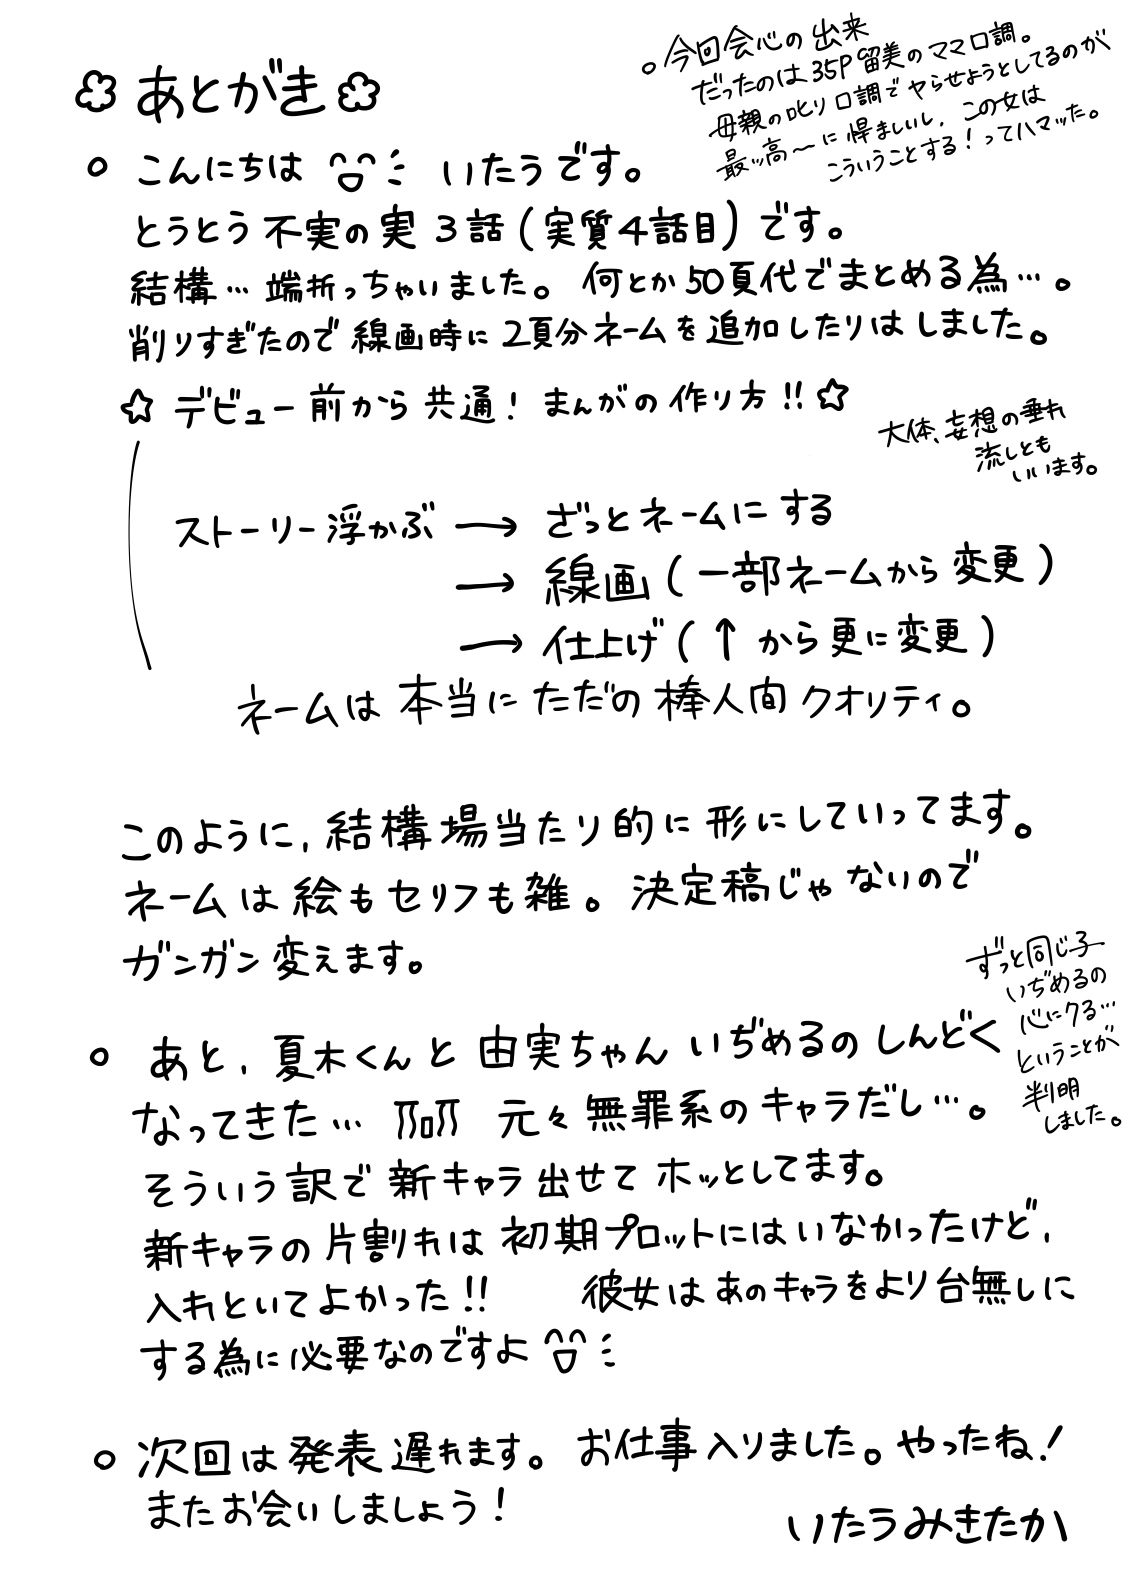 あとがき
。今回会心の出来
だったのは35P留美のママ口調。
母親の叱り口調でヤらせようとしてるのが
最ッ高〜に悍ましいし、この女は
こういうことする!ってハマッた。
○ こんにちは いたうです。
とうとう不実の実3話(実質4話目)です。
結構…端折っちゃいました。何とか50頁代でまとめる為…。
削りすぎたので線画時に2頁分ネームを追加したりはしました。
☆デビュー前から共通!まんがの作り方!!☆
大体、妄想の垂れ
流しとも
いいます。
ストーリー浮かぶ → ざっとネームにする
→ 線画(一部ネームから変更)
→ 仕上げ(↑から更に変更)
ネームは本当にただの棒人間クオリティ。
このように、結構場当たり的に形にしていってます。
ネームは絵もセリフも雑。決定稿じゃないので
ガンガン変えます。
○ あと、夏木くんと由実ちゃんいぢめるのしんどく
なってきた… 元々無罪系のキャラだし…。
ずっと同じ子
いぢめるの
心にクる…
ということが
判明
しました。
そういう訳で新キャラ出せてホッとしてます。
新キャラの片割れは初期プロットにはいなかったけど、
入れといてよかった!! 彼女はあのキャラをより台無しに
する為に必要なのですよ
○ 次回は発表遅れます。お仕事入りました。やったね!
またお会いしましょう!
いたうみきたか